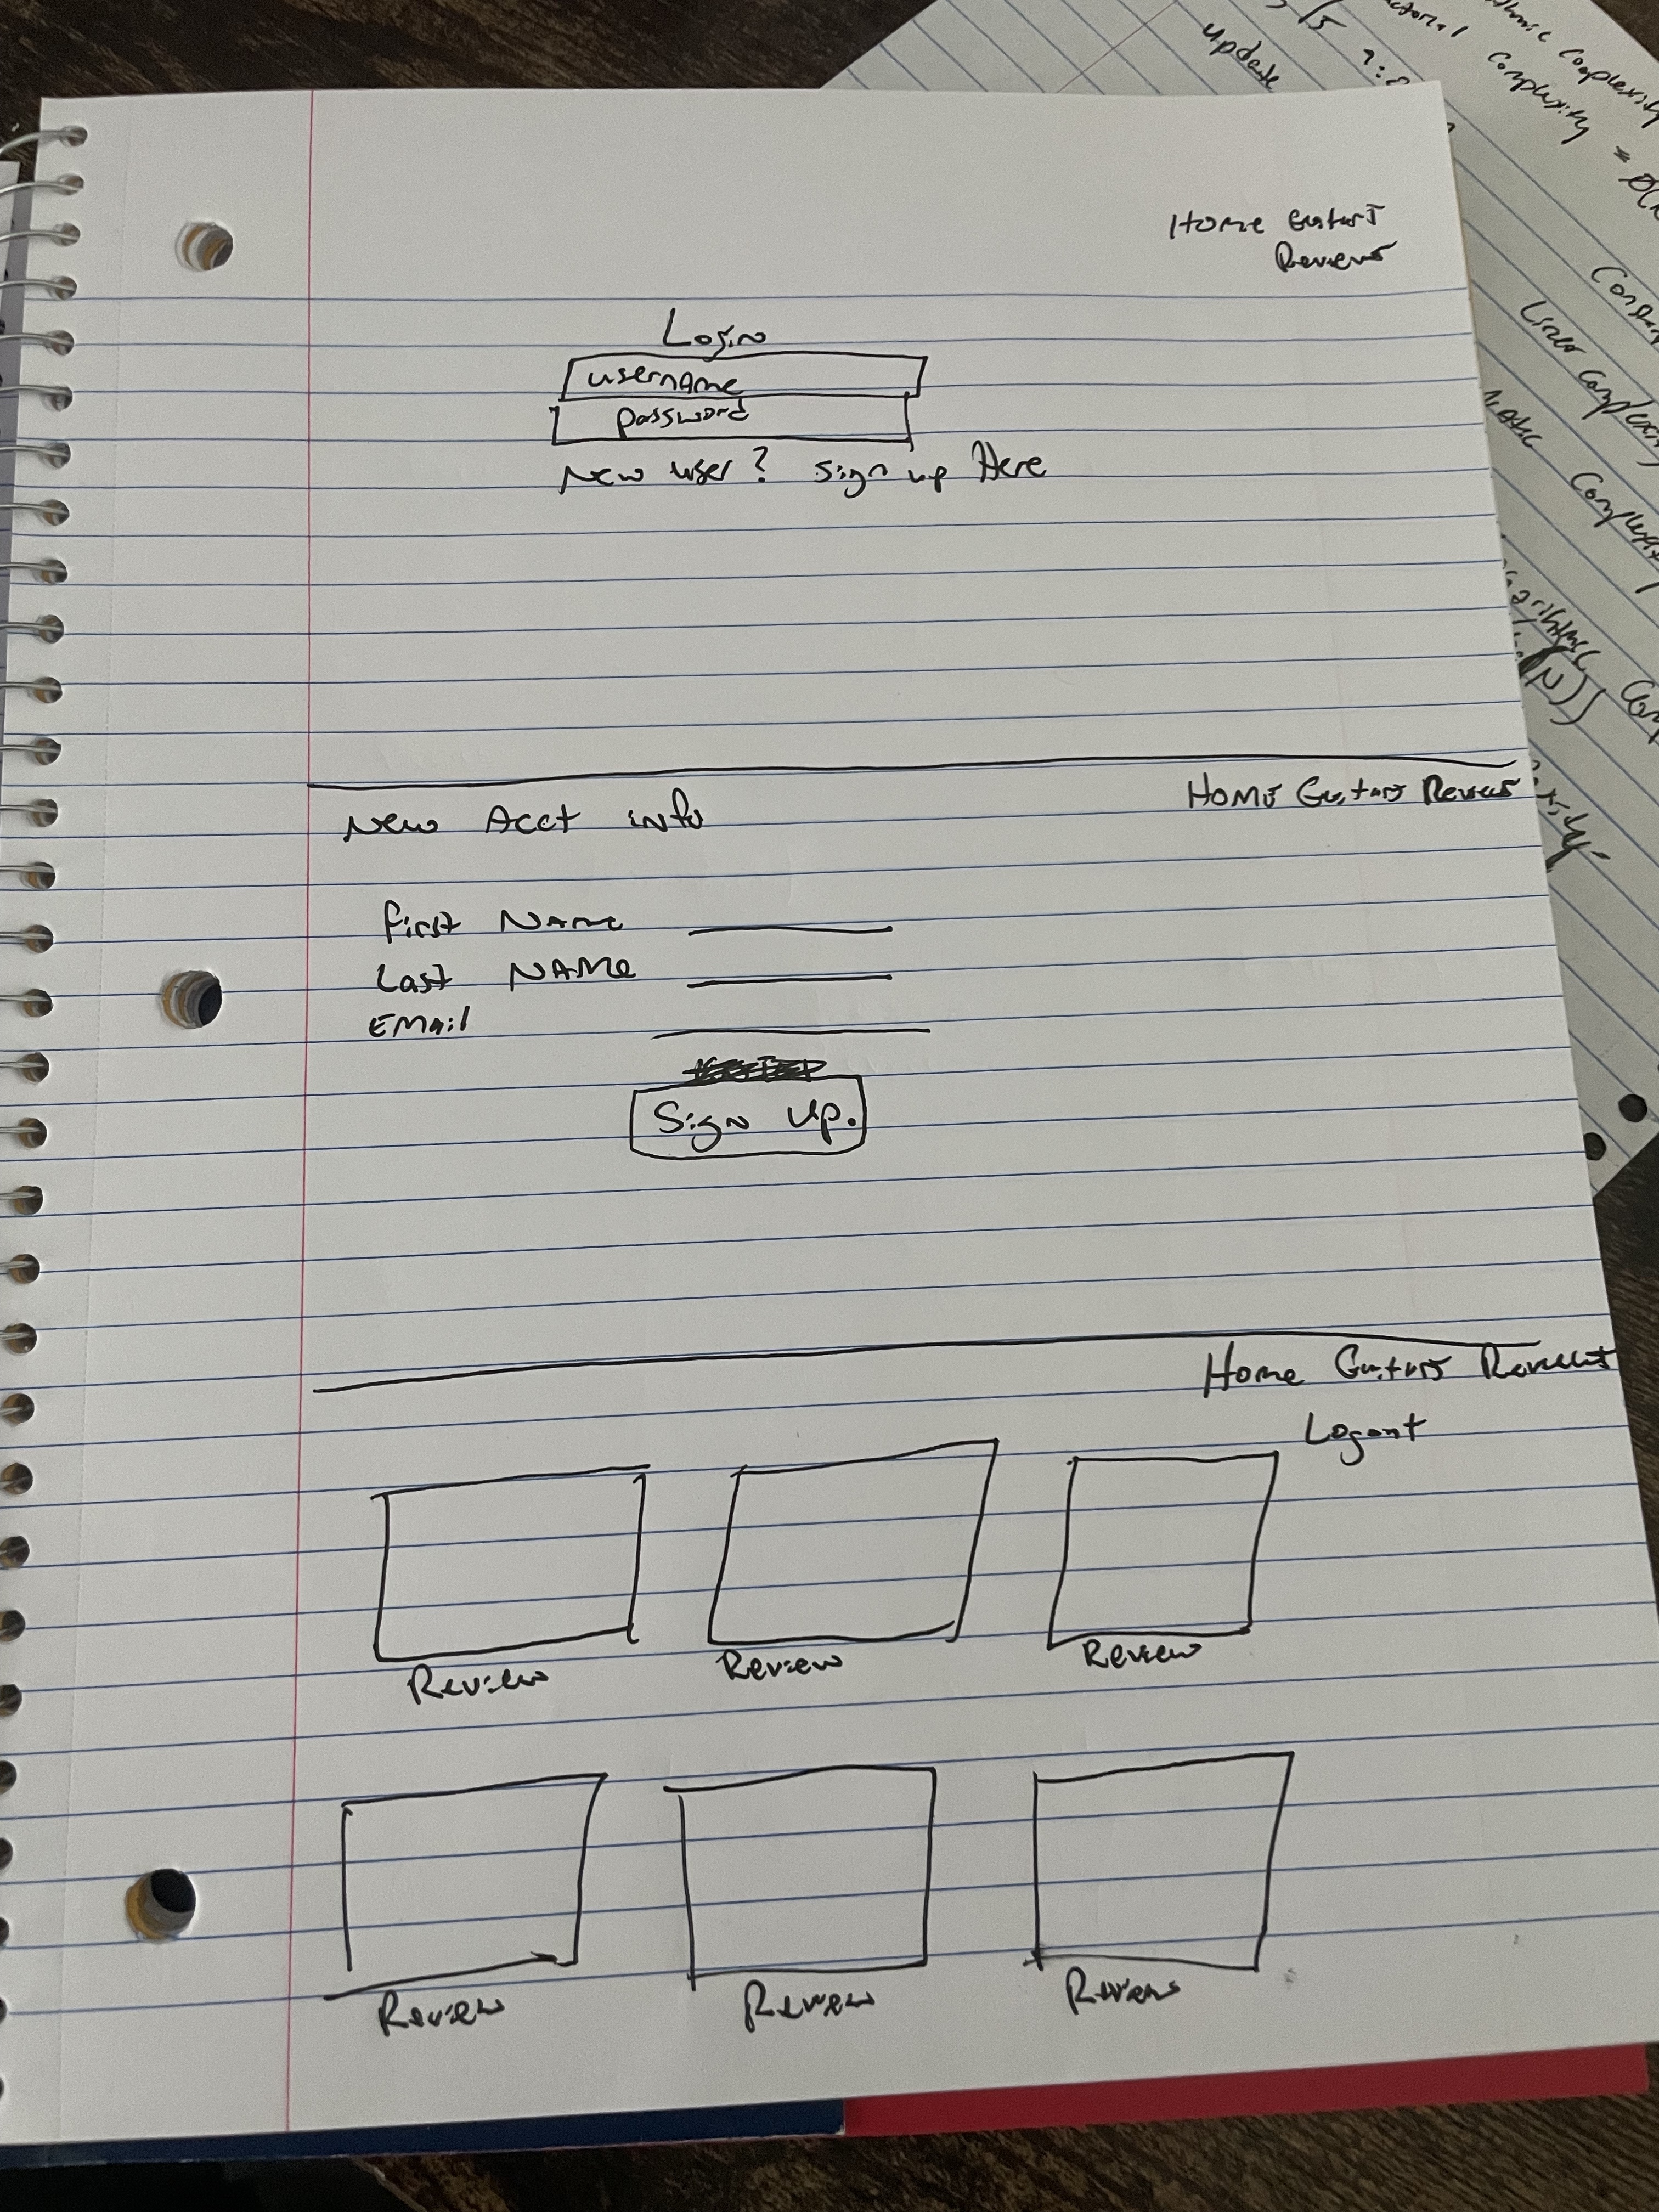 Home Guitars
Reviews
Login
username
password
New user? Sign up Here
New Acct info
Home Guitars Reviews
First Name
Last Name
Email
Sign Up.
Home Guitars Reviews
Logout
Review Review Review
Review Review Review
update
Complexity
Complexity
Linear Complexity